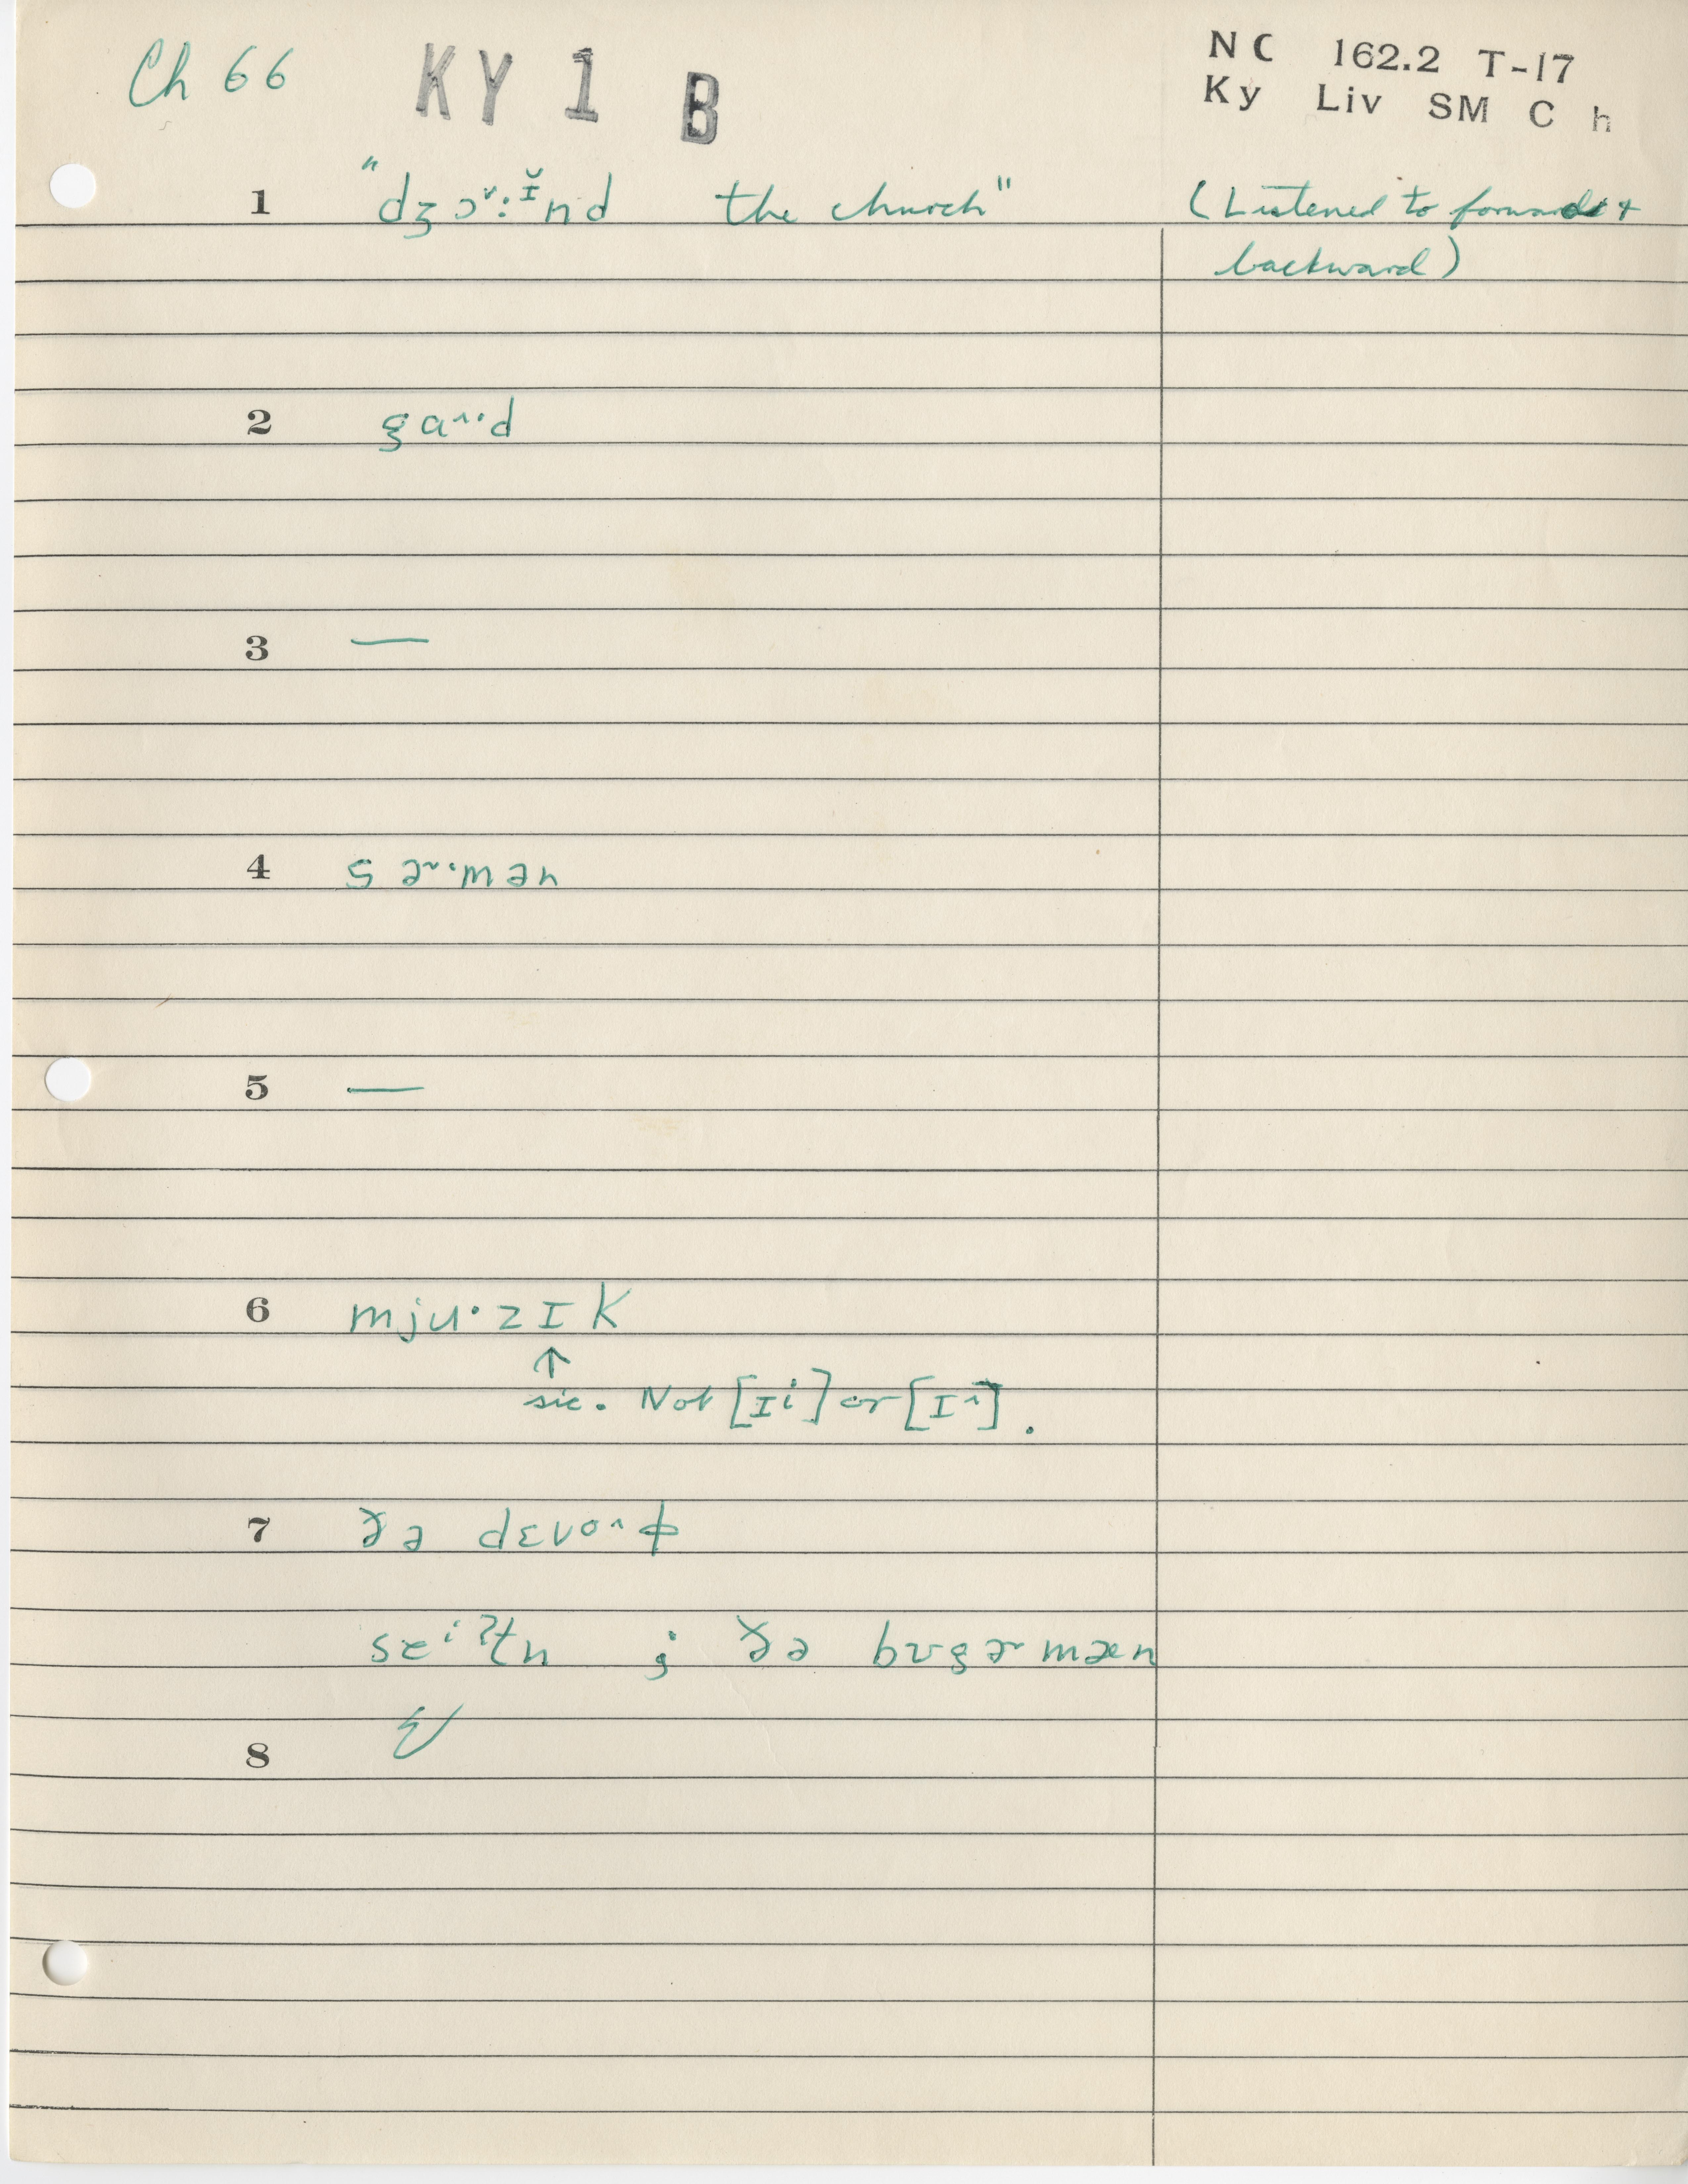 Ch 66 KY 1 B NC 162.2 T-17
Ky Liv SM C h
1 "dʒɔ˅:ɪ̆nd the church" (Listened to forward &
backward)
2 gɑ^·d
3 —
4 sɚ·mən
5 —
6 mju·zɪk
↑
sic. Not [ɪi] or [ɪ^].
7 ðə dɛvo^ɫ
seⁱʔtn ; ðə bʊgɚmæn
8